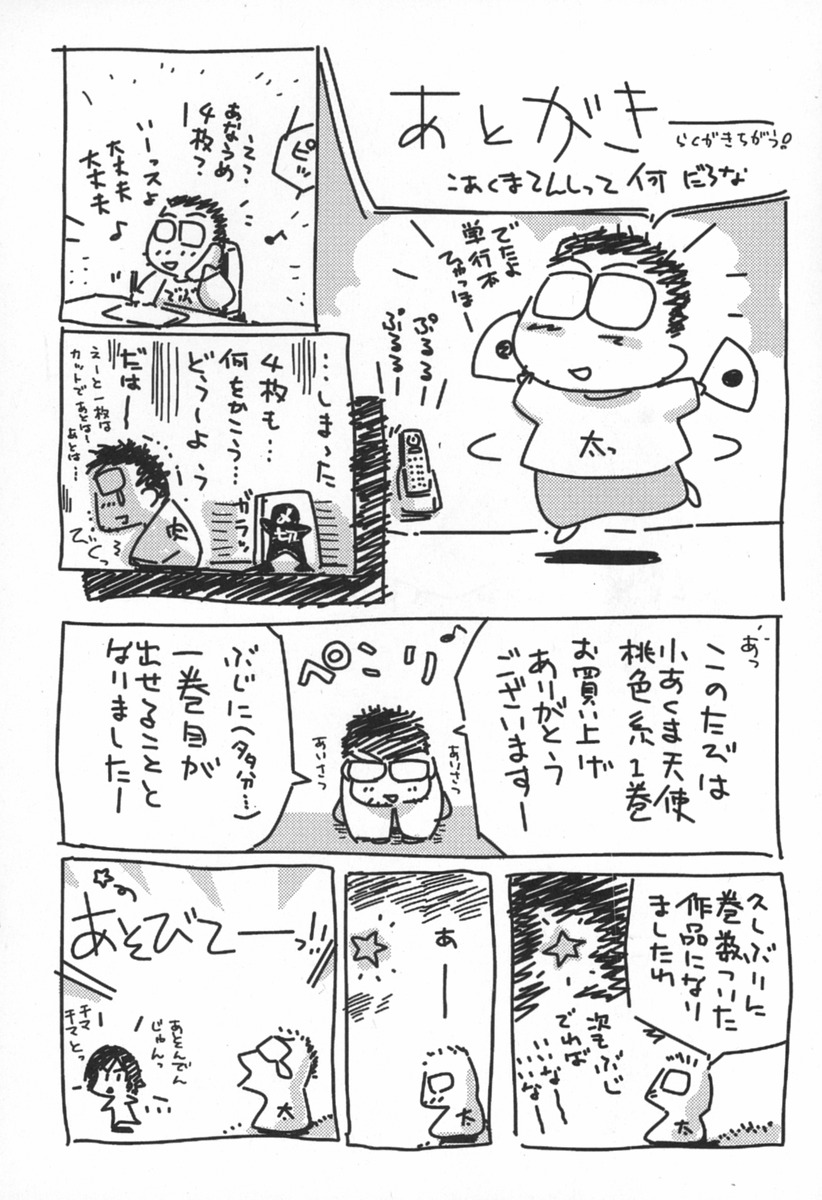 あとがき
らくがきちがう!
こあくまてんしって何だろな
でたよ
単行本
ひゃっほー
ぷるるるー
ぷるるるー
太っ
ピッ
えっ?
あなうめ
4枚?
いーっスよ
大丈夫♪
大丈夫
でぶ
…しまった
4枚も…
何をかこう…
どうしよう
だはー
えーと一枚は
カットであとはー
あとは…
ガラッ
びくっ
肉
あっ
このたびは
小あくま天使
桃色系1巻
お買い上げ
ありがとう
ございますー
ぺこり
あいさつ
あいさつ
ぶじに(多分…)
一巻目が
出せることと
なりましたー
久しぶりに
巻数ついた
作品になり
ましたわ
次もぶじ
でれば
いいなー
太
あー
太
あそびてーっ!!
あとんでん
じゅんっ
チマ
チマとっ
太